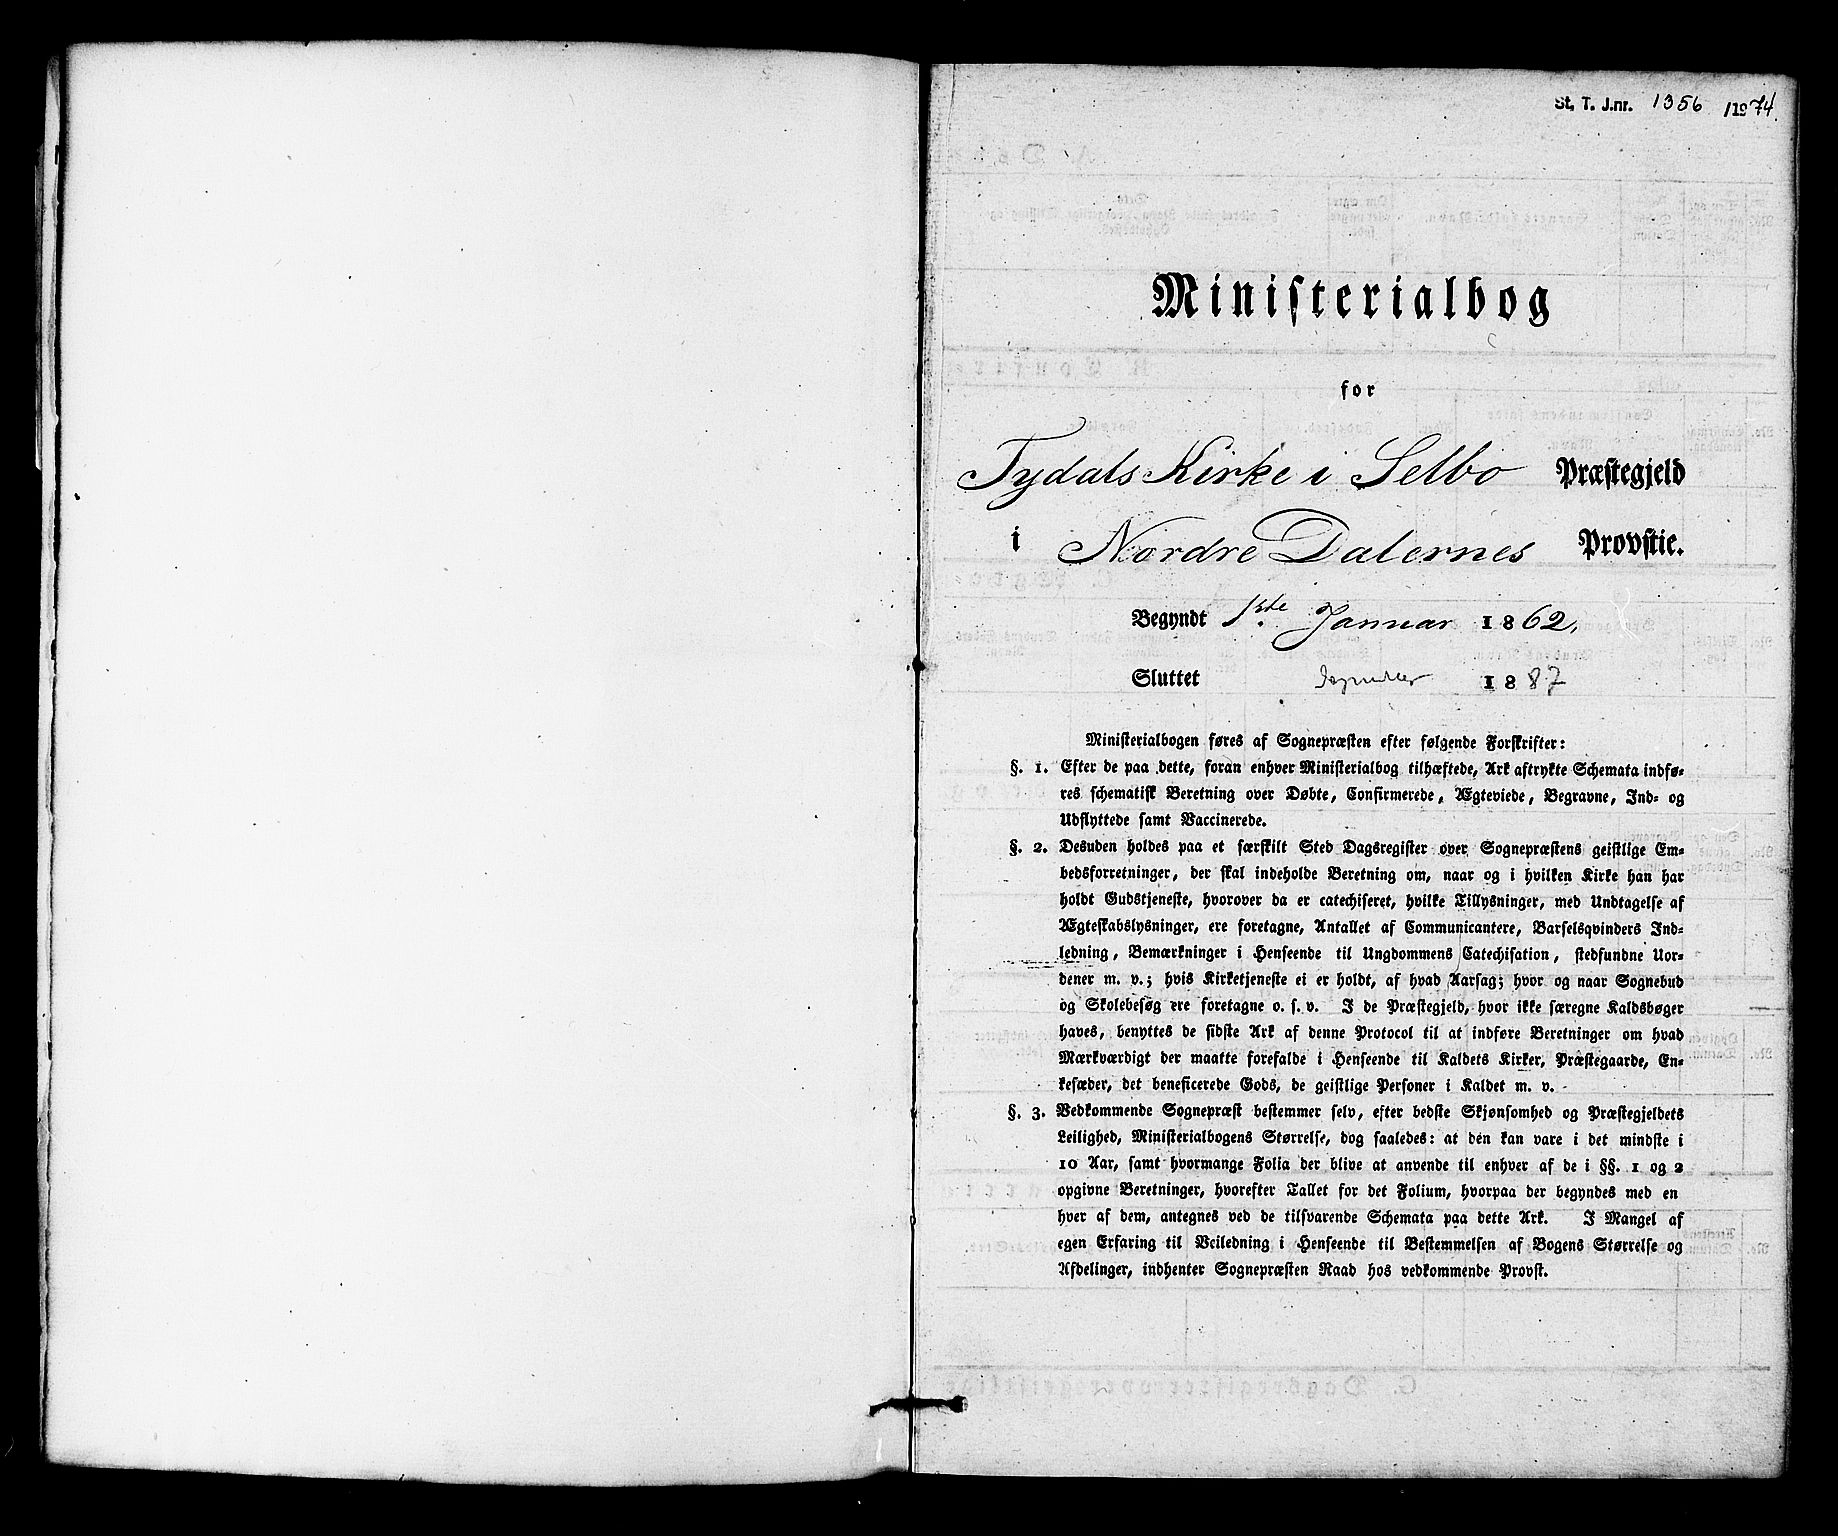 St. T. J.nr. 1356 /1974.
Ministerialbog
for
Tydals Kirke i Selbo Præstegjeld
i Nordre Dalernes Provstie.
Begyndt 1ste Januar 1862.
Sluttet 1887
Ministerialbogen føres af Sognepræsten efter følgende Forskrifter:
§. 1. Efter de paa dette, foran enhver Ministerialbog tilhæftede, Ark aftrykte Schemata indfø-
res schematisk Beretning over Døbte, Confirmerede, Ægteviede, Begravne, Ind- og
Udflyttede samt Vaccinerede.
§. 2. Desuden holdes paa et særskilt Sted Dagsregister over Sognepræstens geistlige Em-
bedsforretninger, der skal indeholde Beretning om, naar og i hvilken Kirke han har
holdt Gudstjeneste, hvorover da er catechiseret, hvilke Tillysninger, med Undtagelse af
Ægteskabslysninger, ere foretagne, Antallet af Communicantere, Barselsqvinders Ind-
ledning, Bemærkninger i Henseende til Ungdommens Catechisation, stedfundne Uor-
dener m. v.; hvis Kirketjeneste ei er holdt, af hvad Aarsag; hvor og naar Sognebud
og Skolebesøg ere foretagne o. s. v. I de Præstegjeld, hvor ikke særegne Kaldsbøger
haves, benyttes de sidste Ark af denne Protocol til at indføre Beretninger om hvad
Mærkværdigt der maatte forefalde i Henseende til Kaldets Kirker, Præstegaarde, En-
kesæder, det beneficerede Gods, de geistlige Personer i Kaldet m. v.
§. 3. Vedkommende Sognepræst bestemmer selv, efter bedste Skjønsomhed og Præstegjeldets
Leilighed, Ministerialbogens Størrelse, dog saaledes: at den kan vare i det mindste i
10 Aar, samt hvormange Folia der blive at anvende til enhver af de i §§. 1 og 2
opgivne Beretninger, hvorefter Tallet for det Folium, hvorpaa der begyndes med en
hver af dem, antegnes ved de tilsvarende Schemata paa dette Ark. I Mangel af
egen Erfaring til Veiledning i Henseende til Bestemmelsen af Bogens Størrelse og
Afdelinger, indhenter Sognepræsten Raad hos vedkommende Provst.